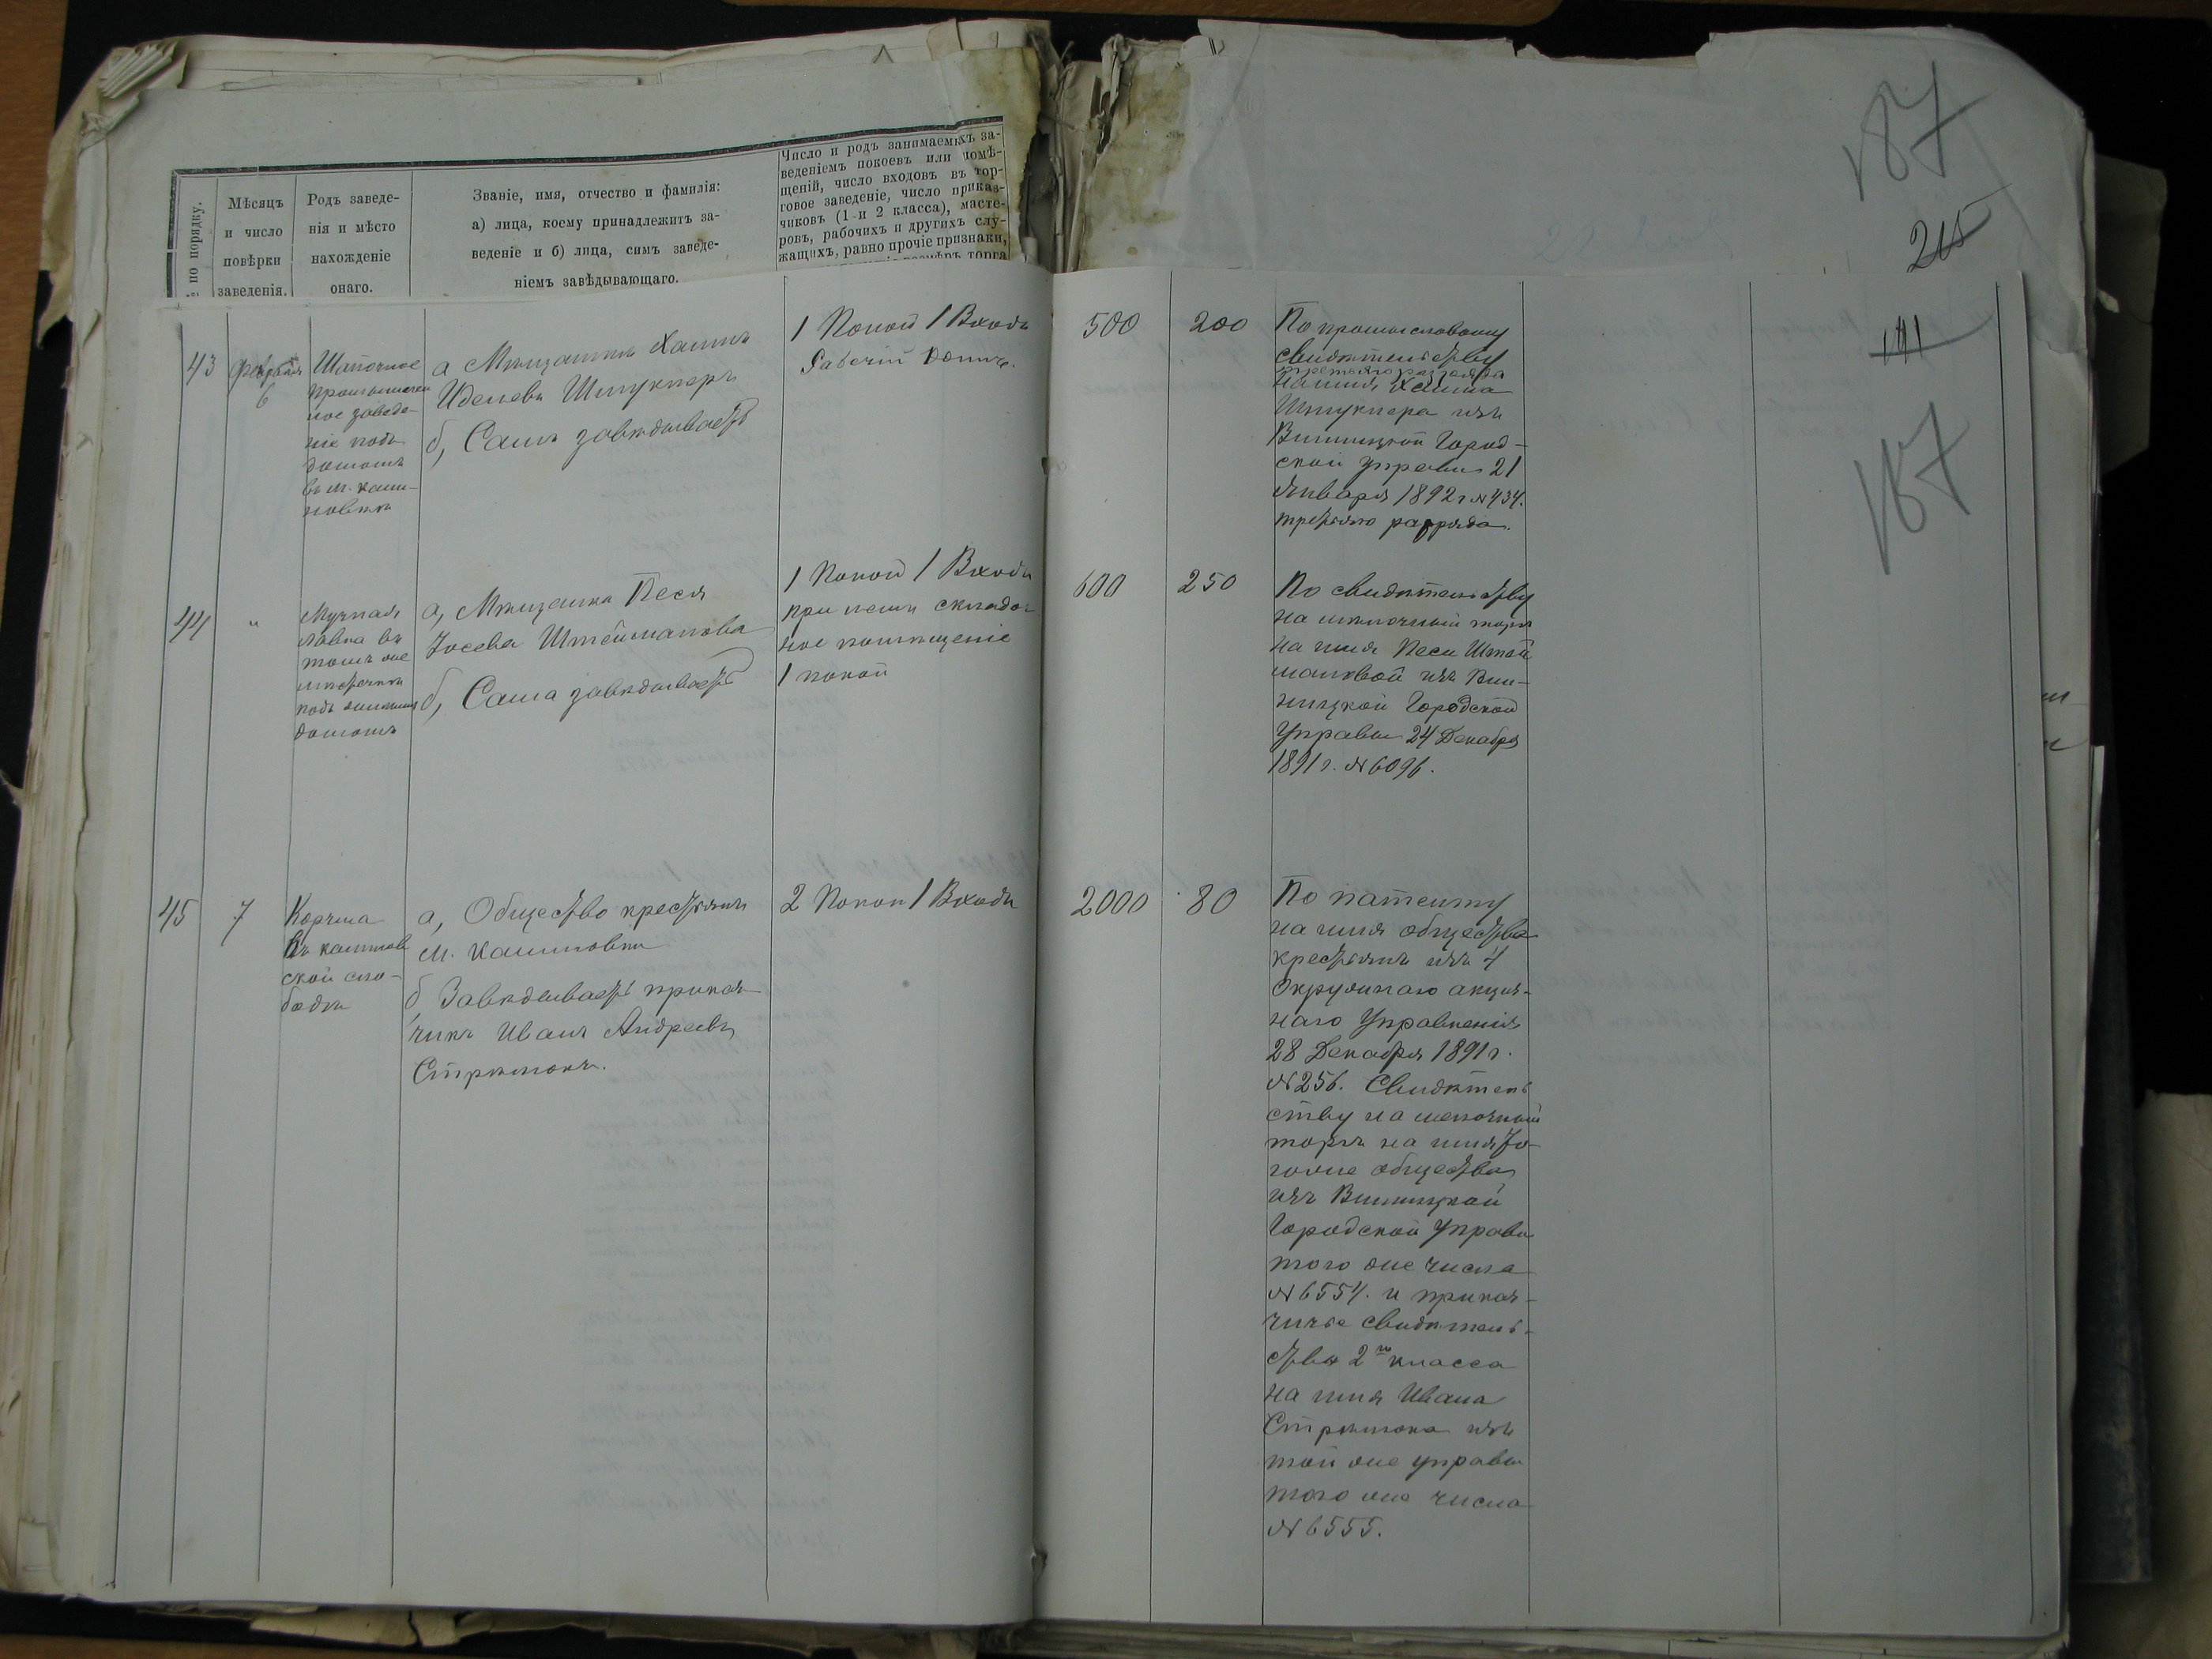 № по порядку.
Мѣсяцъ
и число
повѣрки
заведенія.
Родъ заведе-
нія и мѣсто
нахожденіе
онаго.
Званіе, имя, отчество и фамилія:
а) лица, коему принадлежитъ за-
веденіе и б) лица, симъ заведе-
ніемъ завѣдывающаго.
Число и родъ занимаемыхъ за-
веденіемъ покоевъ или помѣ-
щеній, число входовъ въ тор-
говое заведеніе, число приказ-
чиковъ (1 и 2 класса), масте-
ровъ, рабочихъ и другихъ слу-
жащихъ, равно прочіе признаки,
размѣръ торга
187
215
141
187
43
Февраля
6
Шапочное
промышлен
ное заведе-
ніе подъ
домомъ
въ м. Кали-
новкѣ
а Мѣщанинъ Хаимъ
Иделевъ Штукперъ
б, Самъ завѣдываетъ
1 Покой 1 Входъ
Рабочій
500
200
По промысловому
свидѣтельству
третьяго разряда
на имя Хаима
Штукпера изъ
Винницкой Город-
ской управы 21
Января 1892 г № 434.
третьяго разряда.
44
"
Мучная
лавка въ
томъ же
мѣстечкѣ
подъ
домомъ
а, Мѣщанка Песя
Іосева Штейманова
б, Сама завѣдываетъ
1 Покой 1 Входъ
при немъ складоч
ное помѣщеніе
1 покой
600
250
По свидѣтельству
на мѣлочный торгъ
на имя Песи Штей
мановой изъ Вин-
ницкой Городской
Управы 24 Декабря
1891 г. № 6096.
45
7
Корчма
въ Калинов
ской сло-
бодѣ
а, Общество крестьянъ
м. Калиновки
б, Завѣдываетъ приказ
чикъ Иванъ Андреевъ
Стрѣлокъ.
2 Покоя 1 Входъ
2000
80
По патенту
на имя общества
крестьянъ изъ 4
Окружнаго акциз-
наго Управленія
28 Декабря 1891 г.
№ 256. Свидѣтель
ству на мелочный
торгъ на имя то-
го же общества
изъ Винницкой
Городской Управы
того же числа
№ 6554. и приказ-
чичье свидѣтель-
ство 2го класса
на имя Ивана
Стрѣлока изъ
той же управы
того же числа
№ 6555.